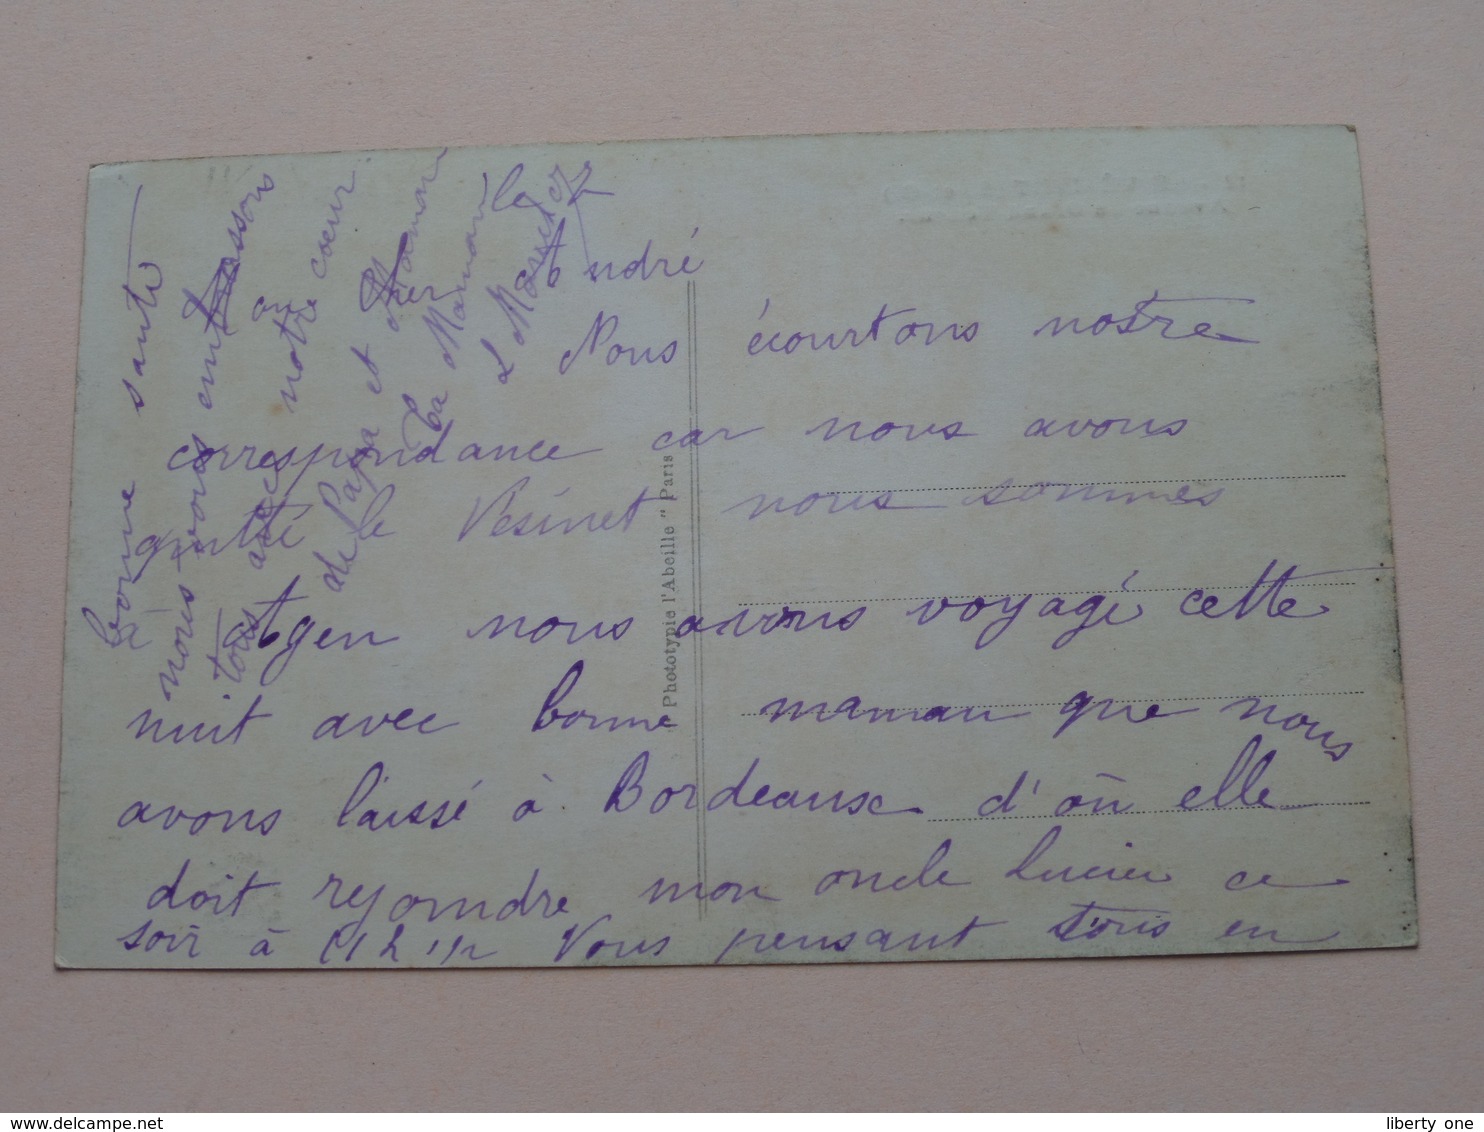 André
Nous écourtons nostre
correspondance car nous avons
quitté le Vésinet nous sommes
à Agen nous avons voyagé cette
nuit avec bonne maman que nous
avons laissé à Bordeaux d'où elle
doit rejoindre mon oncle Lucien ce
soir à 11 h 1/2 Vous pensant tous en
bonne santé
nous vous embrassons
tous avec notre coeur
de Papa et Maman
ta Maman
Phototypie l'Abeille " Paris
liberty one